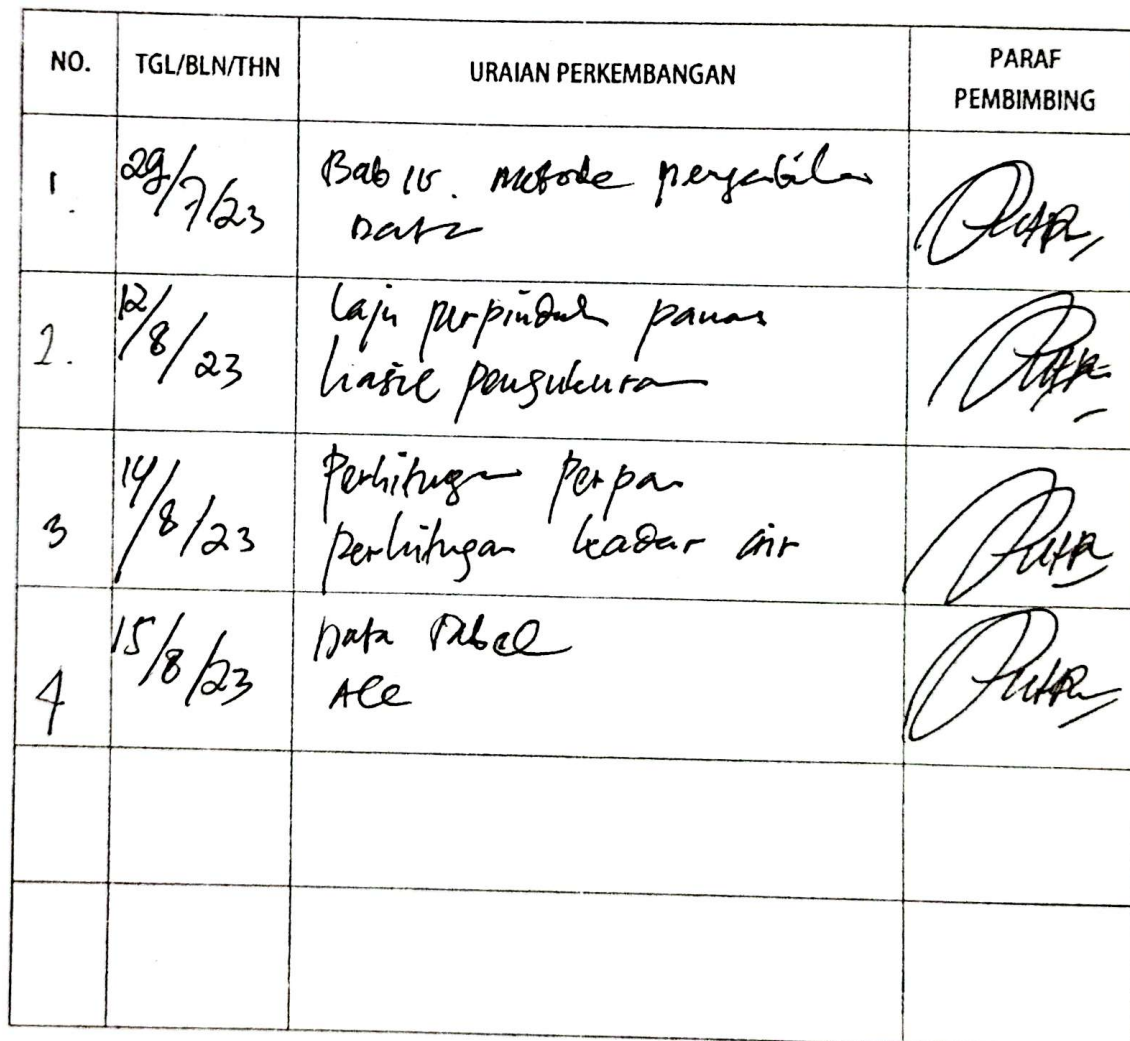 NO. TGL/BLN/THN URAIAN PERKEMBANGAN PARAF PEMBIMBING
1. 29/7/23 Bab IV. Metode pengambilan
Data
2. 12/8/23 Laju perpindah panas
hasil pengukuran
3 14/8/23 Perhitungan Perpan
perhitungan kadar air
4 15/8/23 Data Tabel
Acc